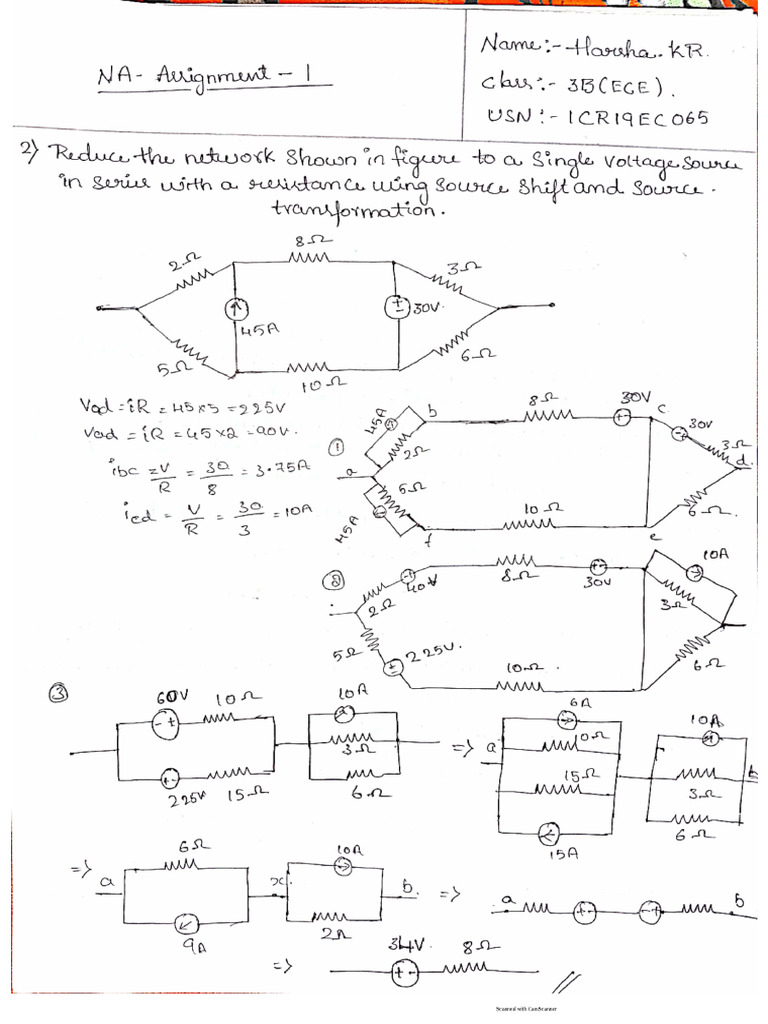 NA- Assignment - 1
Name:- Harsha.KR.
Class:- 3B(ECE).
USN:- 1CR19EC065
2) Reduce the network shown in figure to a single voltage source
in series with a resistance using source shift and source
transformation.
2Ω 8Ω 3Ω
45A 30V.
5Ω 10Ω 6Ω
Vad = iR = 45x5 = 225V
Vad = iR = 45x2 = 90V.
ibc = V/R = 30/8 = 3.75A
icd = V/R = 30/3 = 10A
①
45A b 8Ω 30V c 30V
2Ω 3Ω
a d.
5Ω 10Ω 6Ω
45A f e
②
2Ω 8Ω 30V 10A
3Ω
5Ω 225V.
10Ω 6Ω
③
60V 10Ω 10A
3Ω
225V 15Ω 6Ω
=> a 6A 10A b
15Ω 3Ω
15A 6Ω
=> a 6Ω x. 10A b.
9A 2Ω
=> a b
=> 34V. 8Ω
Scanned with CamScanner